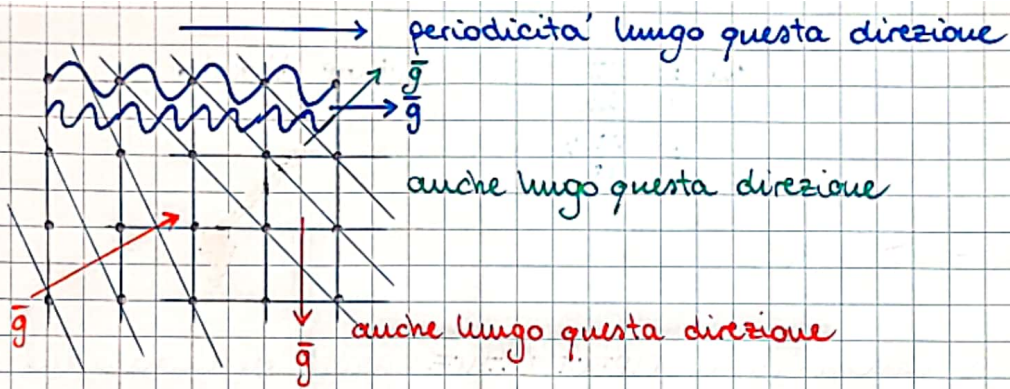 periodicitá lungo questa direzione
ḡ
ḡ
anche lungo questa direzione
ḡ
anche lungo questa direzione
ḡ